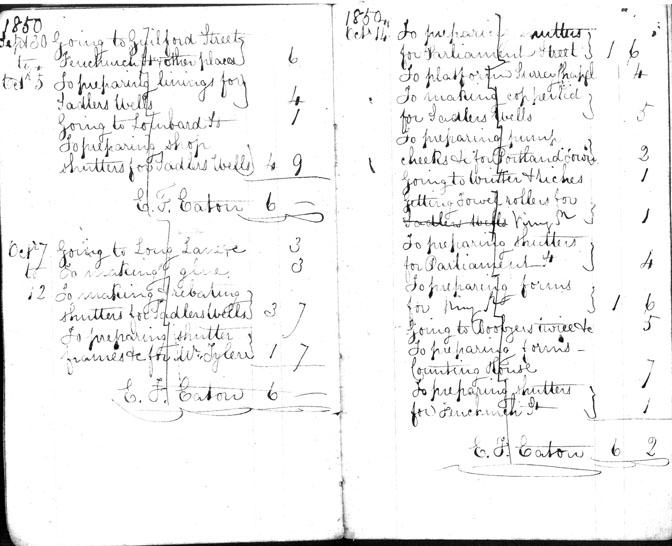 1850
Sept 30 Going to Guilford Street
to Fenchurch St & other places 6
Oct 5 To preparing linings for
Sadlers Wells 4
Going to Lombard St 1
To preparing shop
shutters for Sadlers Wells 4 9
E. F. Eaton 6 —
Oct 7 Going to Long Lane &c 3
to To making give 3
12 To making & rebating
shutters for Sadlers Wells 3 7
To preparing shutter
frames &c for Mr Tylers 1 7
E. F. Eaton 6 —
1850
Oct 14 To preparing shutters
for Parliament Street 1 6
To platform Chapel 4
To making copper lid
for Sadlers Wells 5
To preparing pump
cheeks &c for Portland 2
Going to Winter & Riches 1
Getting Towel rollers for
Sadlers Wells King St 1
To preparing shutters
for Parliament St 4
To preparing forms
for King St 1 6
Going to twice &c 5
To preparing forms –
Counting House 7
To preparing shutters
for Fenchurch St 1
E. F. Eaton 6 2